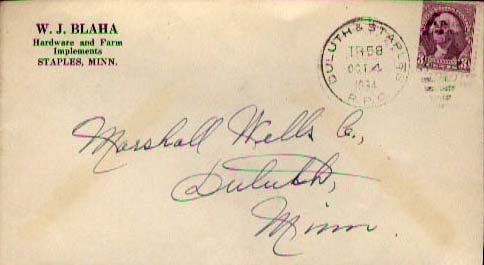 W. J. BLAHA
Hardware and Farm
Implements
STAPLES, MINN.
DULUTH & STAPLES
TR 58
OCT 4
1934
R.P.O.
3 3
Marshall Wells Co.,
Duluth,
Minn.